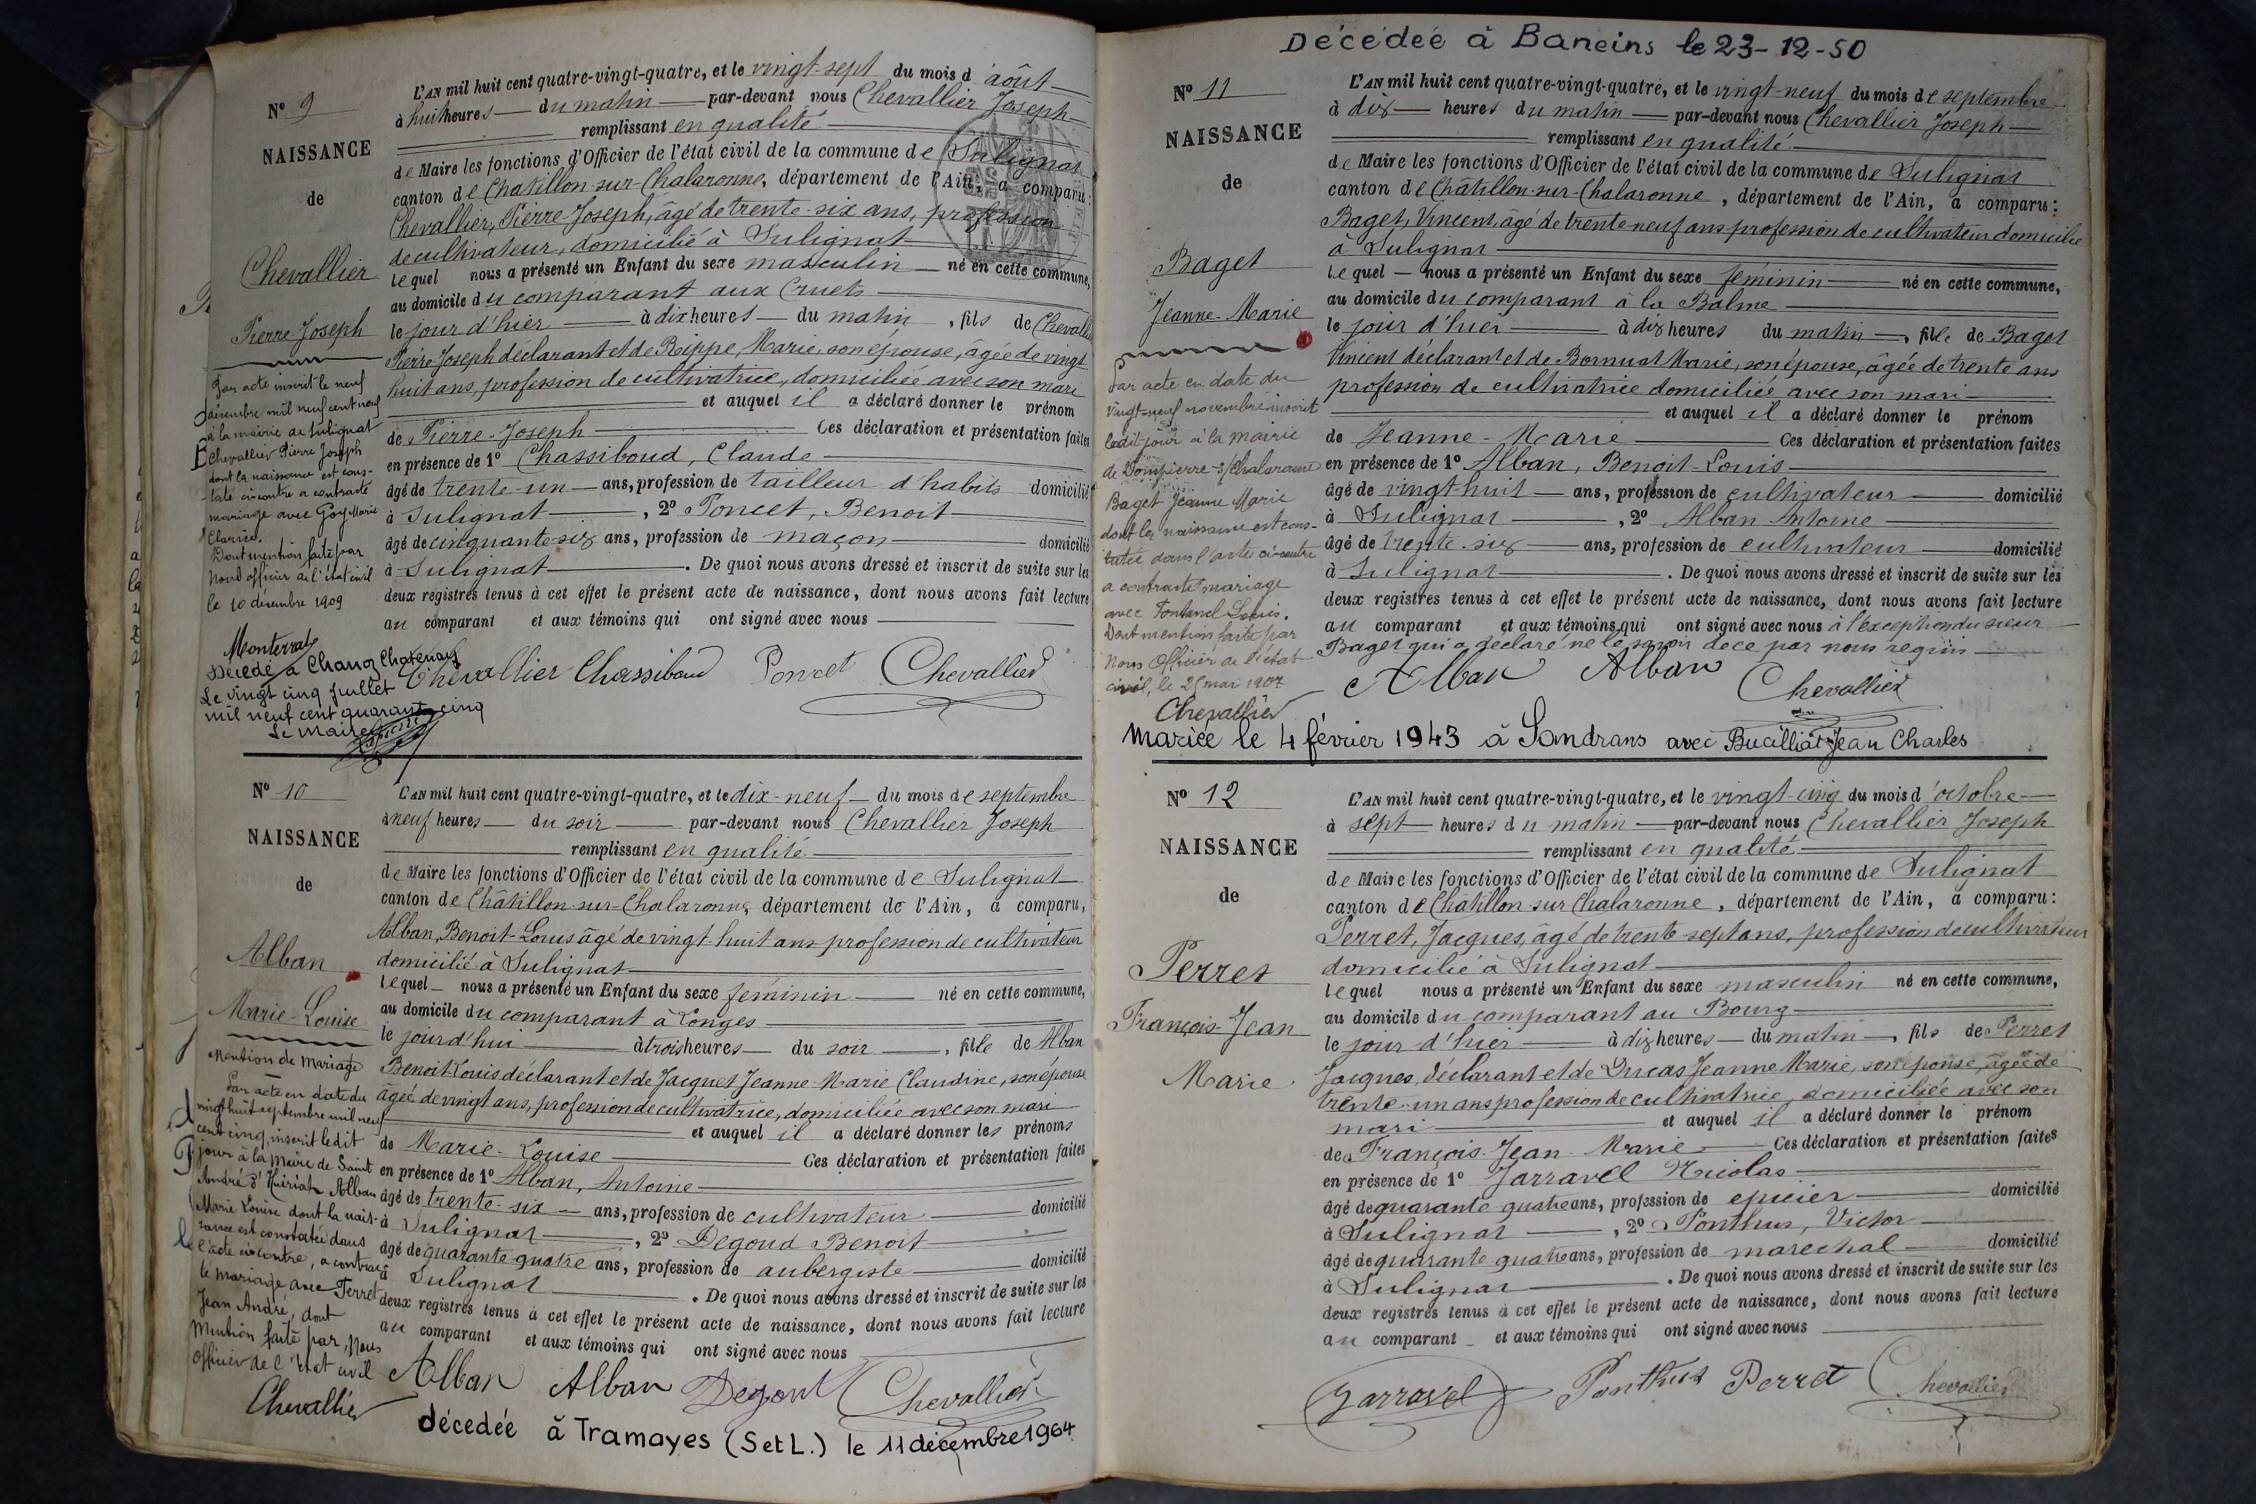 N° 9
NAISSANCE
de
Chevallier
Pierre Joseph
L'AN mil huit cent quatre-vingt-quatre, et le vingt-sept du mois d'août
à huit heures du matin par-devant nous Chevallier Joseph
remplissant en qualité
de Maire les fonctions d'Officier de l'état civil de la commune de Sulignat
canton de Châtillon-sur-Chalaronne, département de l'Ain, a comparu :
Chevallier, Pierre Joseph, âgé de trente-six ans, profession
de cultivateur, domicilié à Sulignat
lequel nous a présenté un Enfant du sexe masculin né en cette commune,
au domicile du comparant aux Cruets
le jour d'hier à dix heures du matin, fils de Chevallier
Pierre Joseph déclarant et de Rippe, Marie, son épouse, âgée de vingt
huit ans, profession de cultivatrice, domiciliée avec son mari
et auquel il a déclaré donner le prénom
de Pierre-Joseph Ces déclaration et présentation faites
en présence de 1° Chassiboud, Claude
âgé de trente-un ans, profession de tailleur d'habits domicilié
à Sulignat, 2° Poncet, Benoit
âgé de cinquante-six ans, profession de maçon domicilié
à Sulignat. De quoi nous avons dressé et inscrit de suite sur les
deux registres tenus à cet effet le présent acte de naissance, dont nous avons fait lecture
au comparant et aux témoins qui ont signé avec nous
Chevallier Chassiboud Poncet Chevallier
Par acte inscrit le neuf
décembre mil neuf cent neuf
à la mairie de Sulignat
Chevallier Pierre Joseph
dont la naissance est cons-
tatée ci-contre a contracté
mariage avec Goy Marie
Clarice.
Dont mention faite par
Nous officier de l'état civil
le 10 décembre 1909
Monterrat
Décédé à Chanoz Chatenay
Le vingt cinq juillet
mil neuf cent quarante cinq
Le Maire
N° 10
NAISSANCE
de
Alban
Marie-Louise
L'AN mil huit cent quatre-vingt-quatre, et le dix-neuf du mois de septembre
à neuf heures du soir par-devant nous Chevallier Joseph
remplissant en qualité
de Maire les fonctions d'Officier de l'état civil de la commune de Sulignat
canton de Châtillon-sur-Chalaronne, département de l'Ain, a comparu,
Alban, Benoit-Louis âgé de vingt-huit ans profession de cultivateur
domicilié à Sulignat
lequel nous a présenté un Enfant du sexe féminin né en cette commune,
au domicile du comparant à Longes
le jour d'hui à trois heures du soir, fille de Alban
Benoit-Louis déclarant et de Jacquet Jeanne-Marie Claudine, son épouse
âgée de vingt ans, profession de cultivatrice, domiciliée avec son mari
et auquel il a déclaré donner les prénoms
de Marie-Louise Ces déclaration et présentation faites
en présence de 1° Alban, Antoine
âgé de trente-six ans, profession de cultivateur domicilié
à Sulignat, 2° Degoud Benoit
âgé de quarante quatre ans, profession de aubergiste domicilié
à Sulignat. De quoi nous avons dressé et inscrit de suite sur les
deux registres tenus à cet effet le présent acte de naissance, dont nous avons fait lecture
au comparant et aux témoins qui ont signé avec nous
Alban Alban Degout Chevallier
Mention de Mariage
Par acte en date du
vingt huit septembre mil neuf
cent cinq, inscrit ledit
jour à la Mairie de Saint
André d'Huiriat Alban
Marie Louise dont la nais-
sance est constatée dans
l'acte ci-contre, a contrac-
té mariage avec Ferret
Jean André, dont
Mention faite par, Nous
Officier de l'Etat civil
Chevallier
décedée à Tramayes (S et L.) le 11 décembre 1964
Décédée à Baneins le 23-12-50
N° 11
NAISSANCE
de
Baget
Jeanne-Marie
L'AN mil huit cent quatre-vingt-quatre, et le vingt-neuf du mois de septembre
à dix heures du matin par-devant nous Chevallier Joseph
remplissant en qualité
de Maire les fonctions d'Officier de l'état civil de la commune de Sulignat
canton de Châtillon-sur-Chalaronne, département de l'Ain, a comparu :
Baget, Vincent, âgé de trente-neuf ans profession de cultivateur domicilié
à Sulignat
lequel nous a présenté un Enfant du sexe féminin né en cette commune,
au domicile du comparant à la Balme
le jour d'hier à dix heures du matin, fille de Baget
Vincent déclarant et de Bornuat Marie, son épouse, âgée de trente ans
profession de cultivatrice domiciliée avec son mari
et auquel il a déclaré donner le prénom
de Jeanne-Marie Ces déclaration et présentation faites
en présence de 1° Alban, Benoit-Louis
âgé de vingt-huit ans, profession de cultivateur domicilié
à Sulignat, 2° Alban Antoine
âgé de trente-six ans, profession de cultivateur domicilié
à Sulignat. De quoi nous avons dressé et inscrit de suite sur les
deux registres tenus à cet effet le présent acte de naissance, dont nous avons fait lecture
au comparant et aux témoins qui ont signé avec nous à l'exception du sieur
Baget qui a déclaré ne le savoir de ce par nous requis
Alban Alban Chevallier
Par acte en date du
vingt-neuf novembre inscrit
ledit jour à la mairie
de Dompierre-s/Chalaronne
Baget Jeanne Marie
dont la naissance est cons-
tatée dans l'acte ci-contre
a contracté mariage
avec Fontanel Louis.
Dont mention faite par
Nous Officier de l'état
civil, le 25 mai 1907
Chevallier
Mariée le 4 février 1943 à Sandrans avec Bucilliat Jean Charles
N° 12
NAISSANCE
de
Perret
François-Jean
Marie
L'AN mil huit cent quatre-vingt-quatre, et le vingt-cinq du mois d'octobre
à sept heures du matin par-devant nous Chevallier Joseph
remplissant en qualité
de Maire les fonctions d'Officier de l'état civil de la commune de Sulignat
canton de Châtillon sur Chalaronne, département de l'Ain, a comparu :
Perret, Jacques, âgé de trente-sept ans, profession de cultivateur
domicilié à Sulignat
lequel nous a présenté un Enfant du sexe masculin né en cette commune,
au domicile du comparant au Bourg
le jour d'hier à dix heures du matin, fils de Perret
Jacques, déclarant et de Ducas Jeanne Marie, son épouse, âgée de
trente-un ans profession de cultivatrice, domiciliée avec son
mari et auquel il a déclaré donner le prénom
de François-Jean-Marie Ces déclaration et présentation faites
en présence de 1° Jarravel Nicolas
âgé de quarante quatre ans, profession de epicier domicilié
à Sulignat, 2° Ponthus, Victor
âgé de quarante quatre ans, profession de marechal domicilié
à Sulignat. De quoi nous avons dressé et inscrit de suite sur les
deux registres tenus à cet effet le présent acte de naissance, dont nous avons fait lecture
au comparant et aux témoins qui ont signé avec nous
Jarravel Ponthus Perret Chevallier